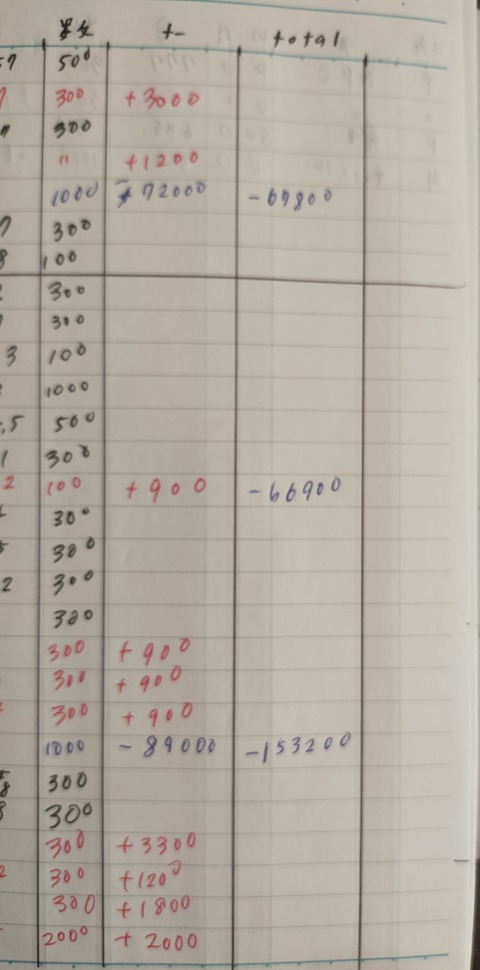 +- total
7 500
300 +3000
300
" +1200
1000 -72000 -67800
7 300
8 100
300
300
3 100
1000
.5 500
1 300
2 100 +900 -66900
300
300
2 300
300
300 +900
300 +900
300 +900
1000 -89000 -153200
8 300
300
300 +3300
2 300 +1200
300 +1800
2000 +2000